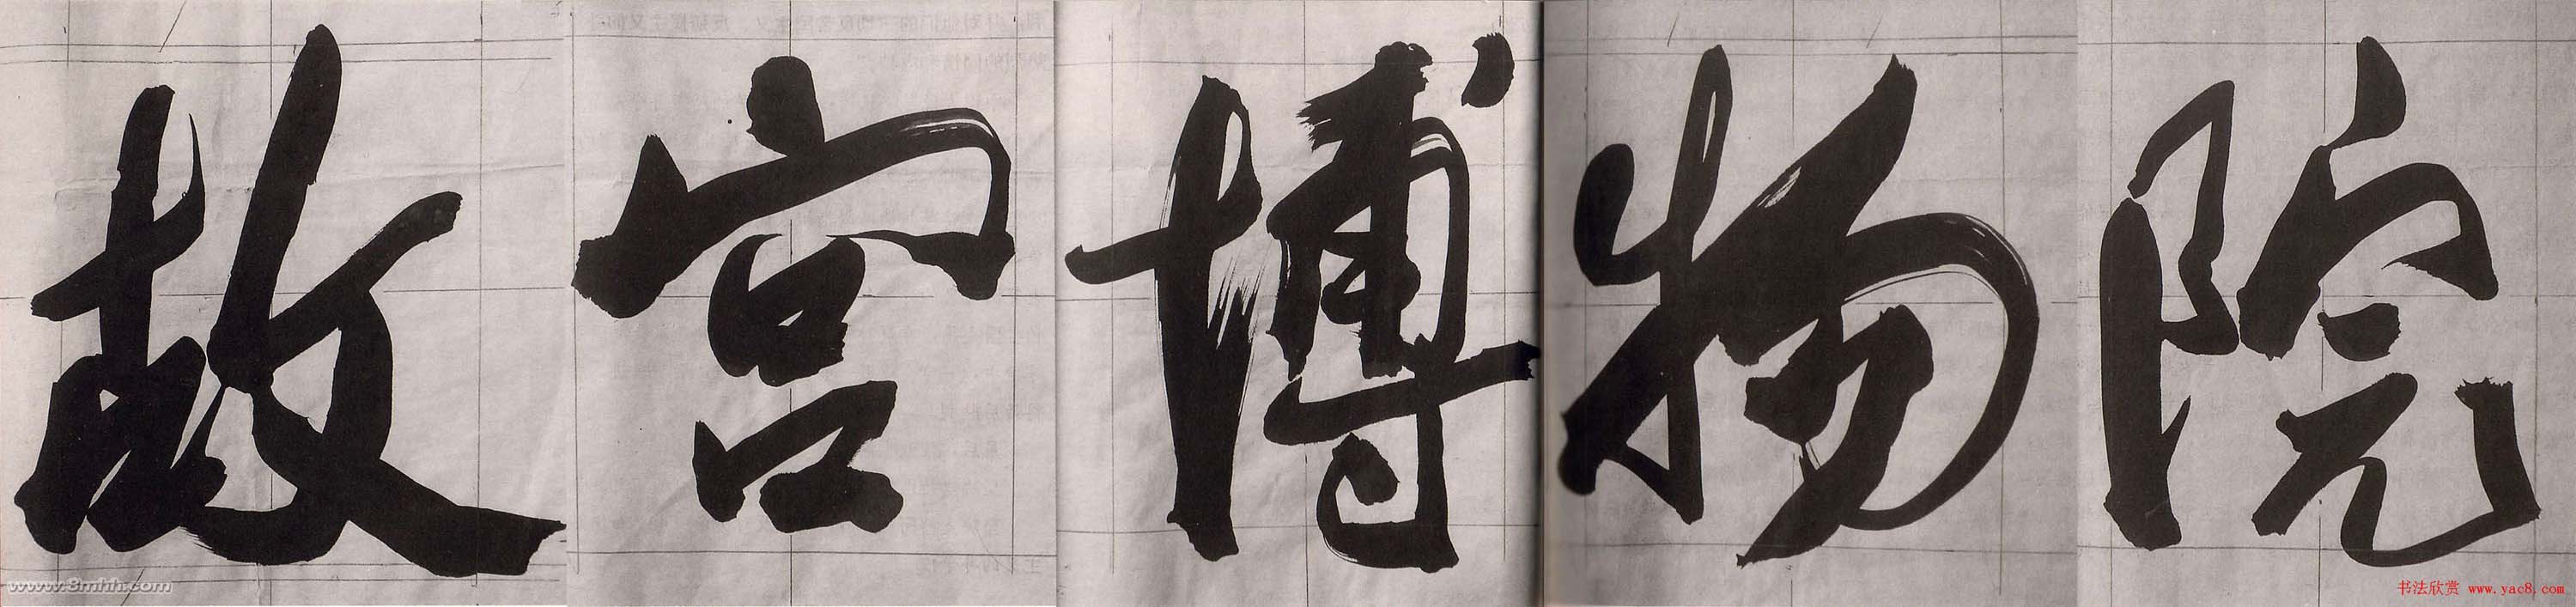 故宫博物院
www.8mhh.com
书法欣赏 www.yac8.com